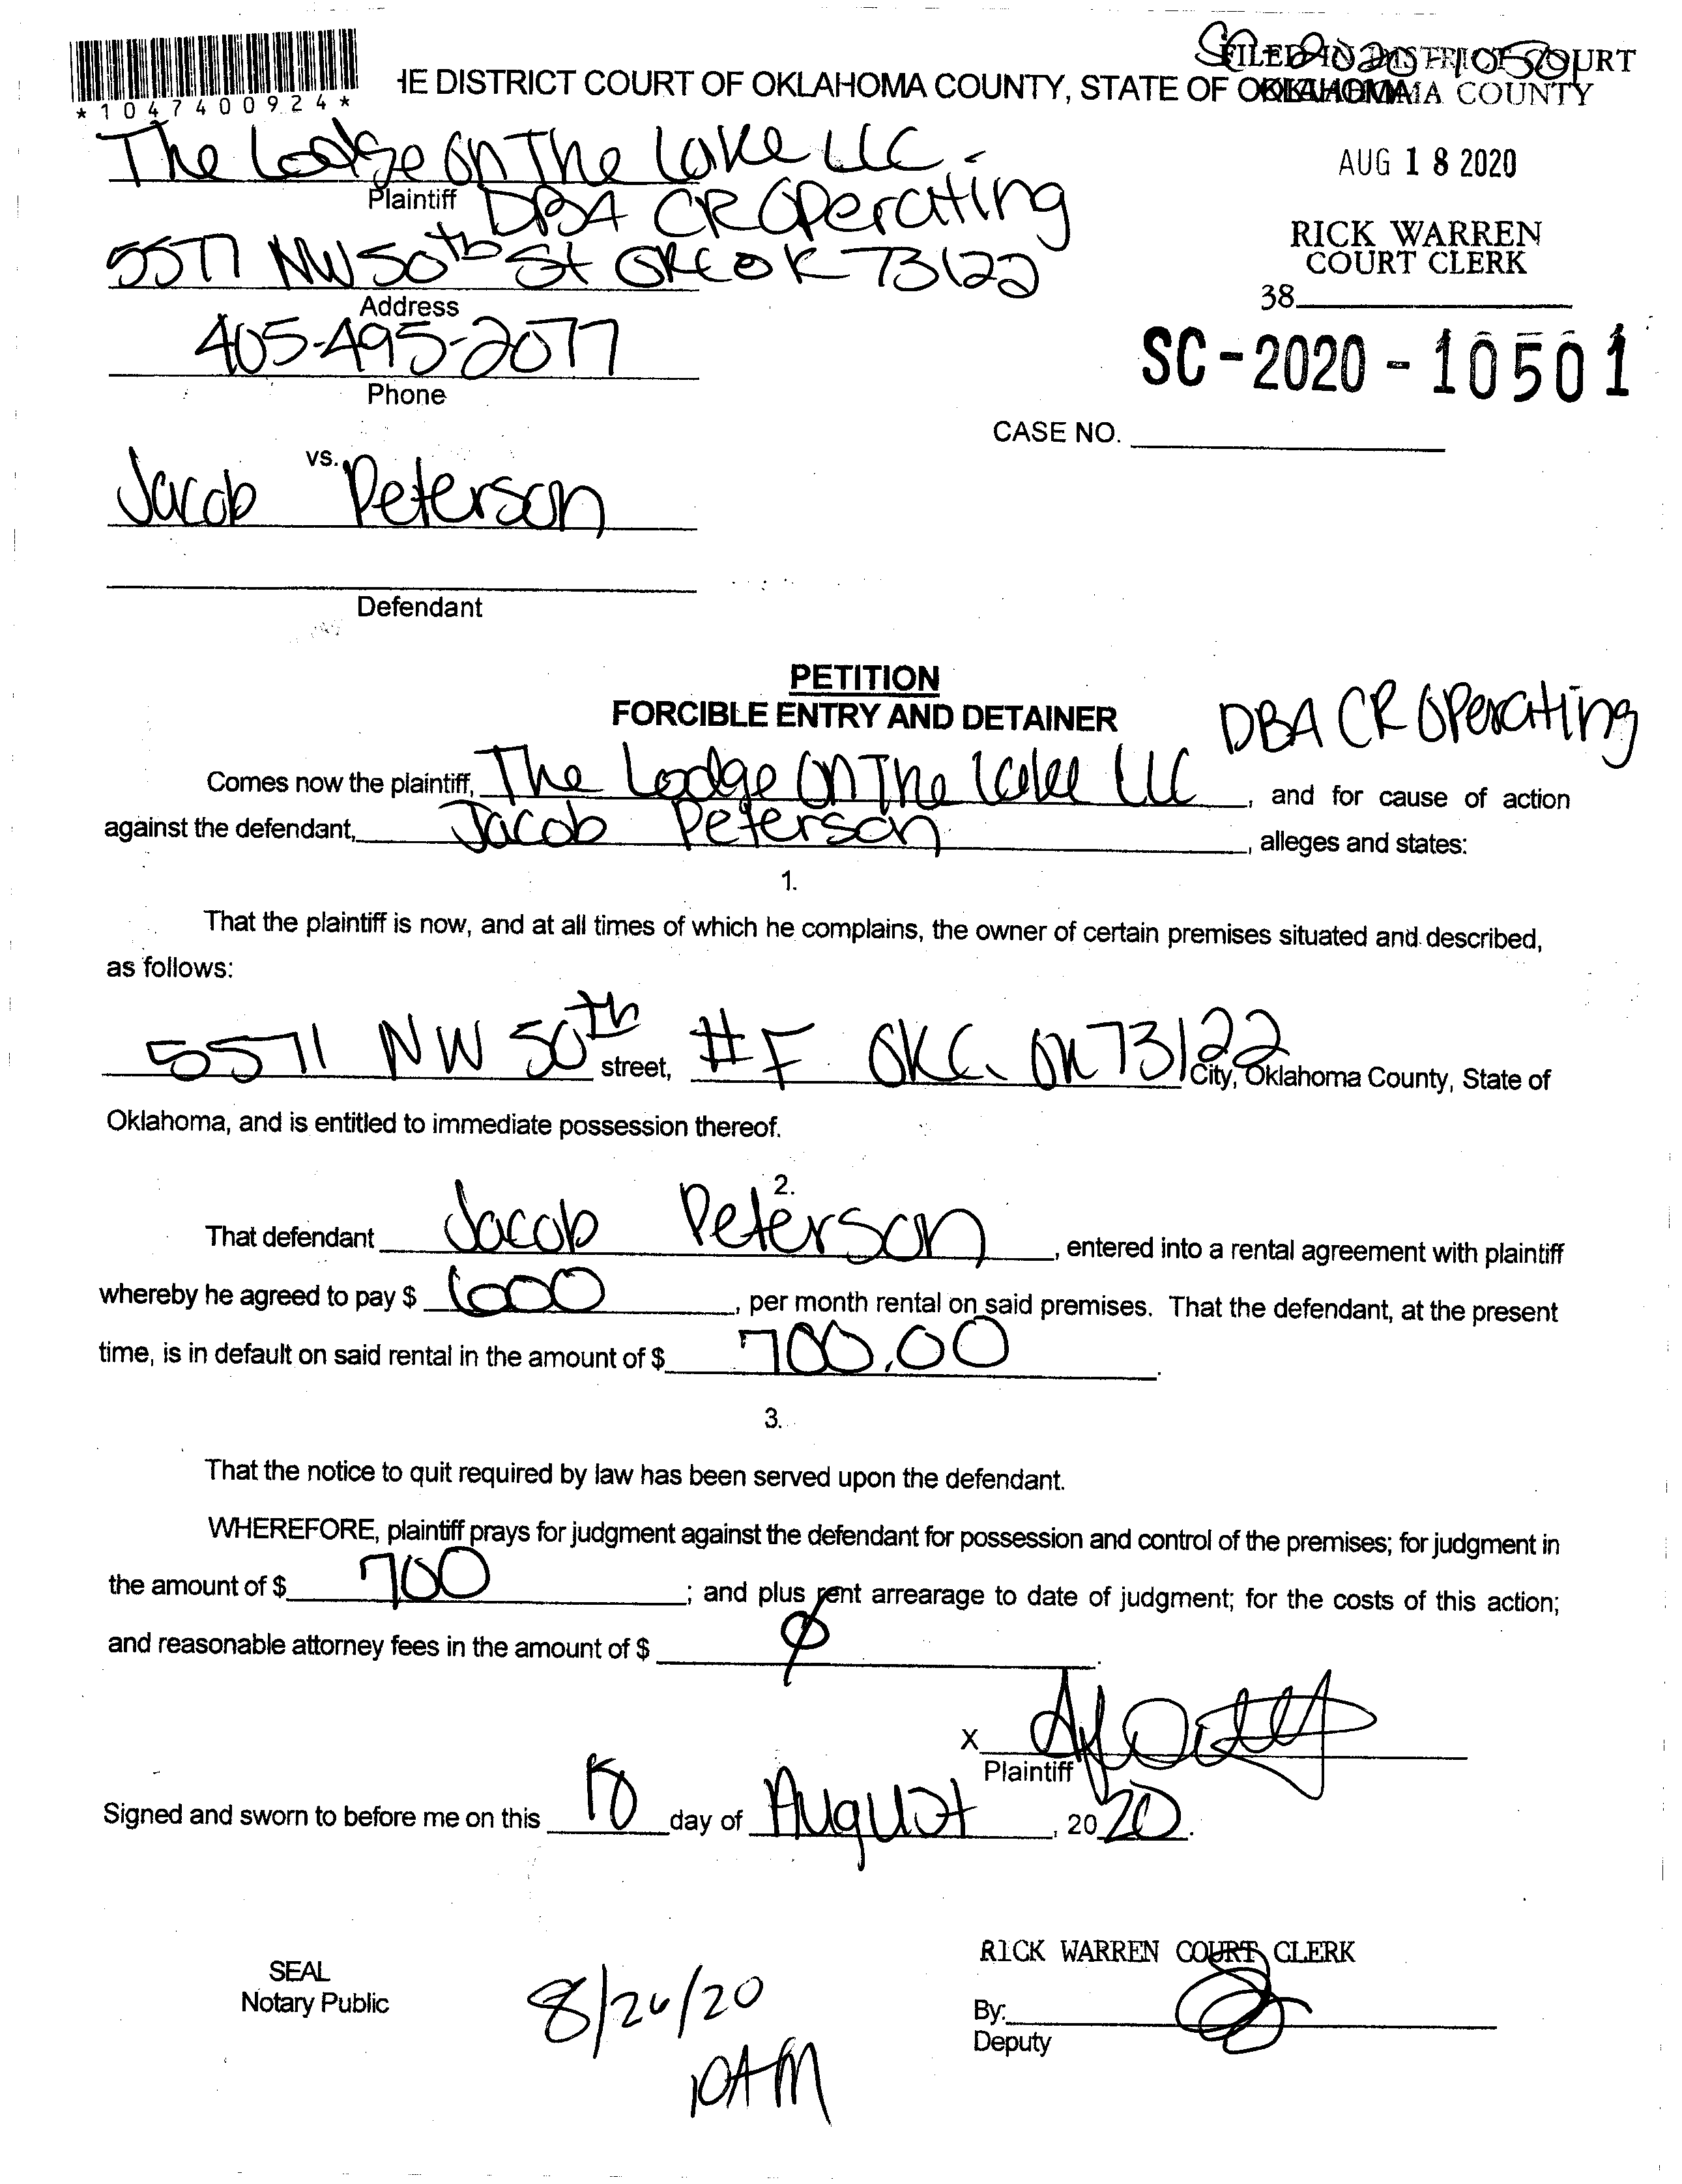 SC-2020-10501
FILED IN DISTRICT COURT
HE DISTRICT COURT OF OKLAHOMA COUNTY, STATE OF OKLAHOMA
OKLAHOMA COUNTY
*1047400924*
The Lodge on The Lake LLC -
Plaintiff
DBA CR Operating
AUG 18 2020
5577 NW 50th St OKC OK 73122
Address
RICK WARREN
COURT CLERK
38
405-495-2077
Phone
SC-2020-10501
CASE NO.
vs.
Jacob Peterson
Defendant
PETITION
FORCIBLE ENTRY AND DETAINER
DBA CR Operating
Comes now the plaintiff, The Lodge On The Lake LLC, and for cause of action
against the defendant, Jacob Peterson, alleges and states:
1.
That the plaintiff is now, and at all times of which he complains, the owner of certain premises situated and described,
as follows:
5571 NW 50th street, #F OKC, OK 73122 City, Oklahoma County, State of
Oklahoma, and is entitled to immediate possession thereof.
2.
That defendant Jacob Peterson, entered into a rental agreement with plaintiff
whereby he agreed to pay $ 600, per month rental on said premises. That the defendant, at the present
time, is in default on said rental in the amount of $ 700.00.
3.
That the notice to quit required by law has been served upon the defendant.
WHEREFORE, plaintiff prays for judgment against the defendant for possession and control of the premises; for judgment in
the amount of $ 700; and plus rent arrearage to date of judgment; for the costs of this action;
and reasonable attorney fees in the amount of $ 0.
X
Plaintiff
Signed and sworn to before me on this 18 day of August, 2020.
RICK WARREN COURT CLERK
SEAL
Notary Public
8/26/20
By:
Deputy
10AM